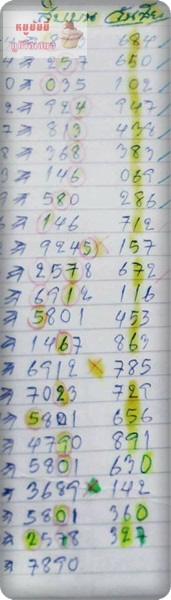 684
4 → 257 650
0 → 035 102
2 → 924 947
7 → 813 434
8 → 368 383
3 → 146 069
9 → 580 286
6 → 146 712
→ 9245 × 157
→ 2578 672
→ 6912 116
→ 5801 453
→ 1467 863
→ 6912 × 785
→ 7023 729
→ 5801 656
→ 4790 891
→ 5801 630
→ 3689 × 142
→ 5801 360
→ 2578 327
→ 7890